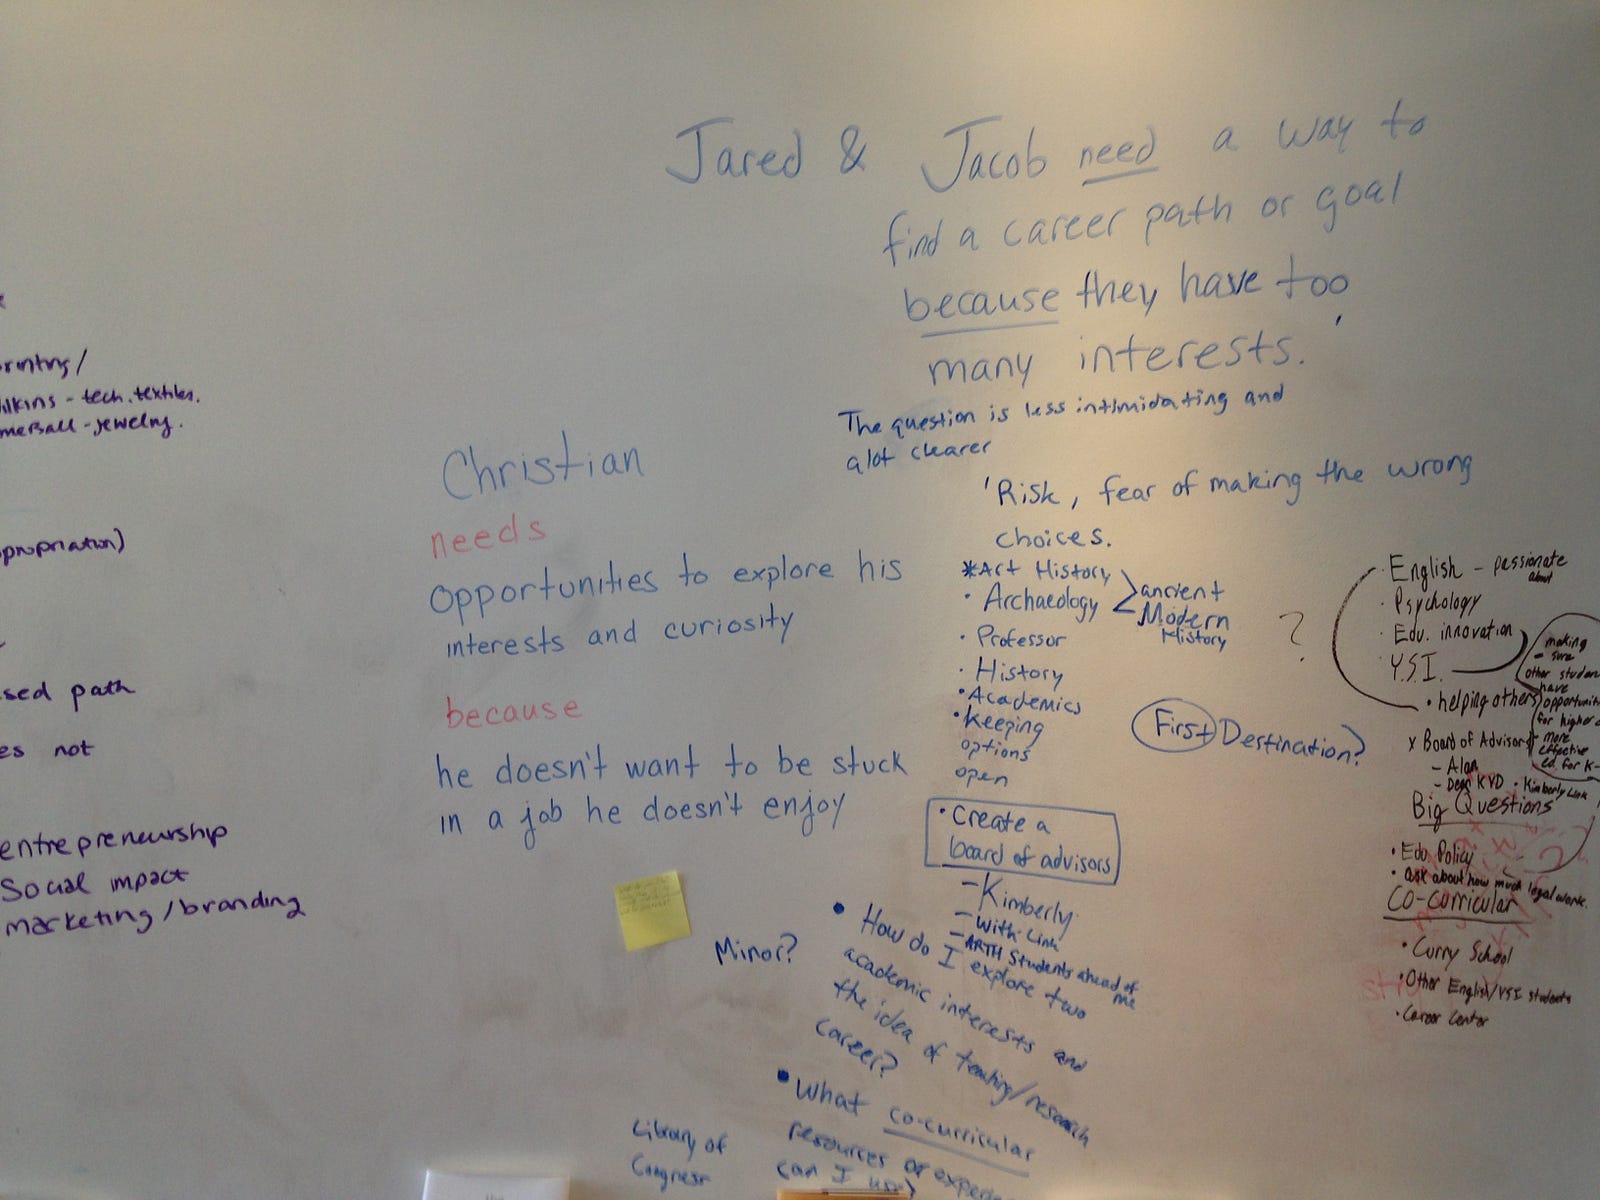 Jared & Jacob need a way to
find a career path or goal
because they have too
many interests.
The question is less intimidating and
alot clearer
'Risk, fear of making the wrong
choices.
*Art History
• Archaeology
ancient
Modern
History
• Professor
• History
• Academics
• Keeping
options
open
• Create a
board of advisors
- Kimberly
- With Link
- ARTH Students ahead of
me
Minor?
• How do I explore two
academic interests and
the idea of teaching/research
career?
• What co-curricular
resources or
can I use?
Library of
Congress
Christian
needs
opportunities to explore his
interests and curiosity
because
he doesn't want to be stuck
in a job he doesn't enjoy
- tech. textiles.
- jewelry.
path
not
entrepreneurship
Social impact
marketing/branding
?
First Destination?
• English - passionate
about
• Psychology
• Edu. innovation
• Y.S.I.
• helping others
making
- sure
other
have
for higher
- more
effective
ed. for K-
x Board of Advisors
- Alan
- Dean KVD • Kimberly Link
Big Questions
• Edu Policy
• ask about how much legal work.
Co-curricular
• Curry School
• Other English/YSI students
• Career Center